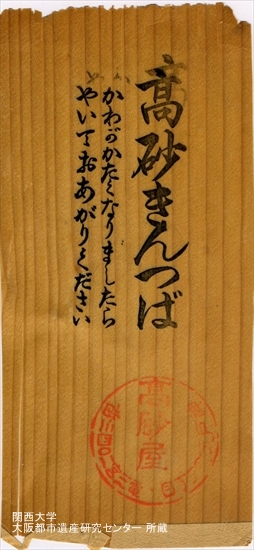 高砂きんつば
かわがかたくなりましたら
やいておあがりください
高砂屋
関西大学
大阪都市遺産研究センター 所蔵